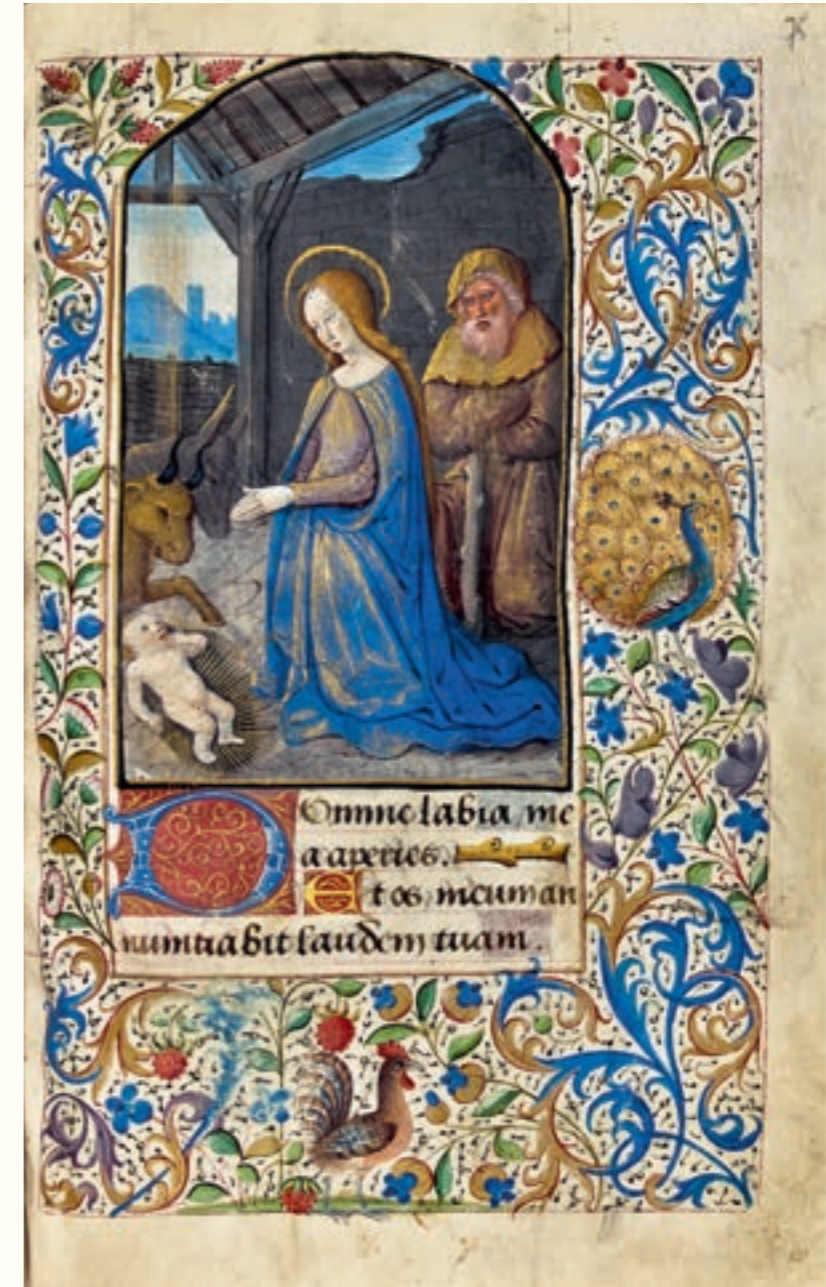 Domine labia me
a aperies.
Et os meum an
nunciabit laudem tuam.